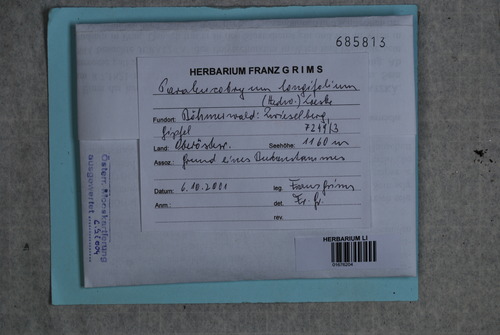 685813
HERBARIUM FRANZ GRIMS
Paraleucobryum longifolium
(Hedw.) Loeske
Fundort: Böhmerwald: Zwieselberg,
Gipfel 7249/3
Land: Oberösterr. Seehöhe: 1160 m
Assoz.: Grund eines Buchenstammes
Datum: 6.10.2001 leg. Franz Grims
Anm.: det. Fr. Gr.
rev.
HERBARIUM LI
Österr. Mooskartierung
ausgewertet